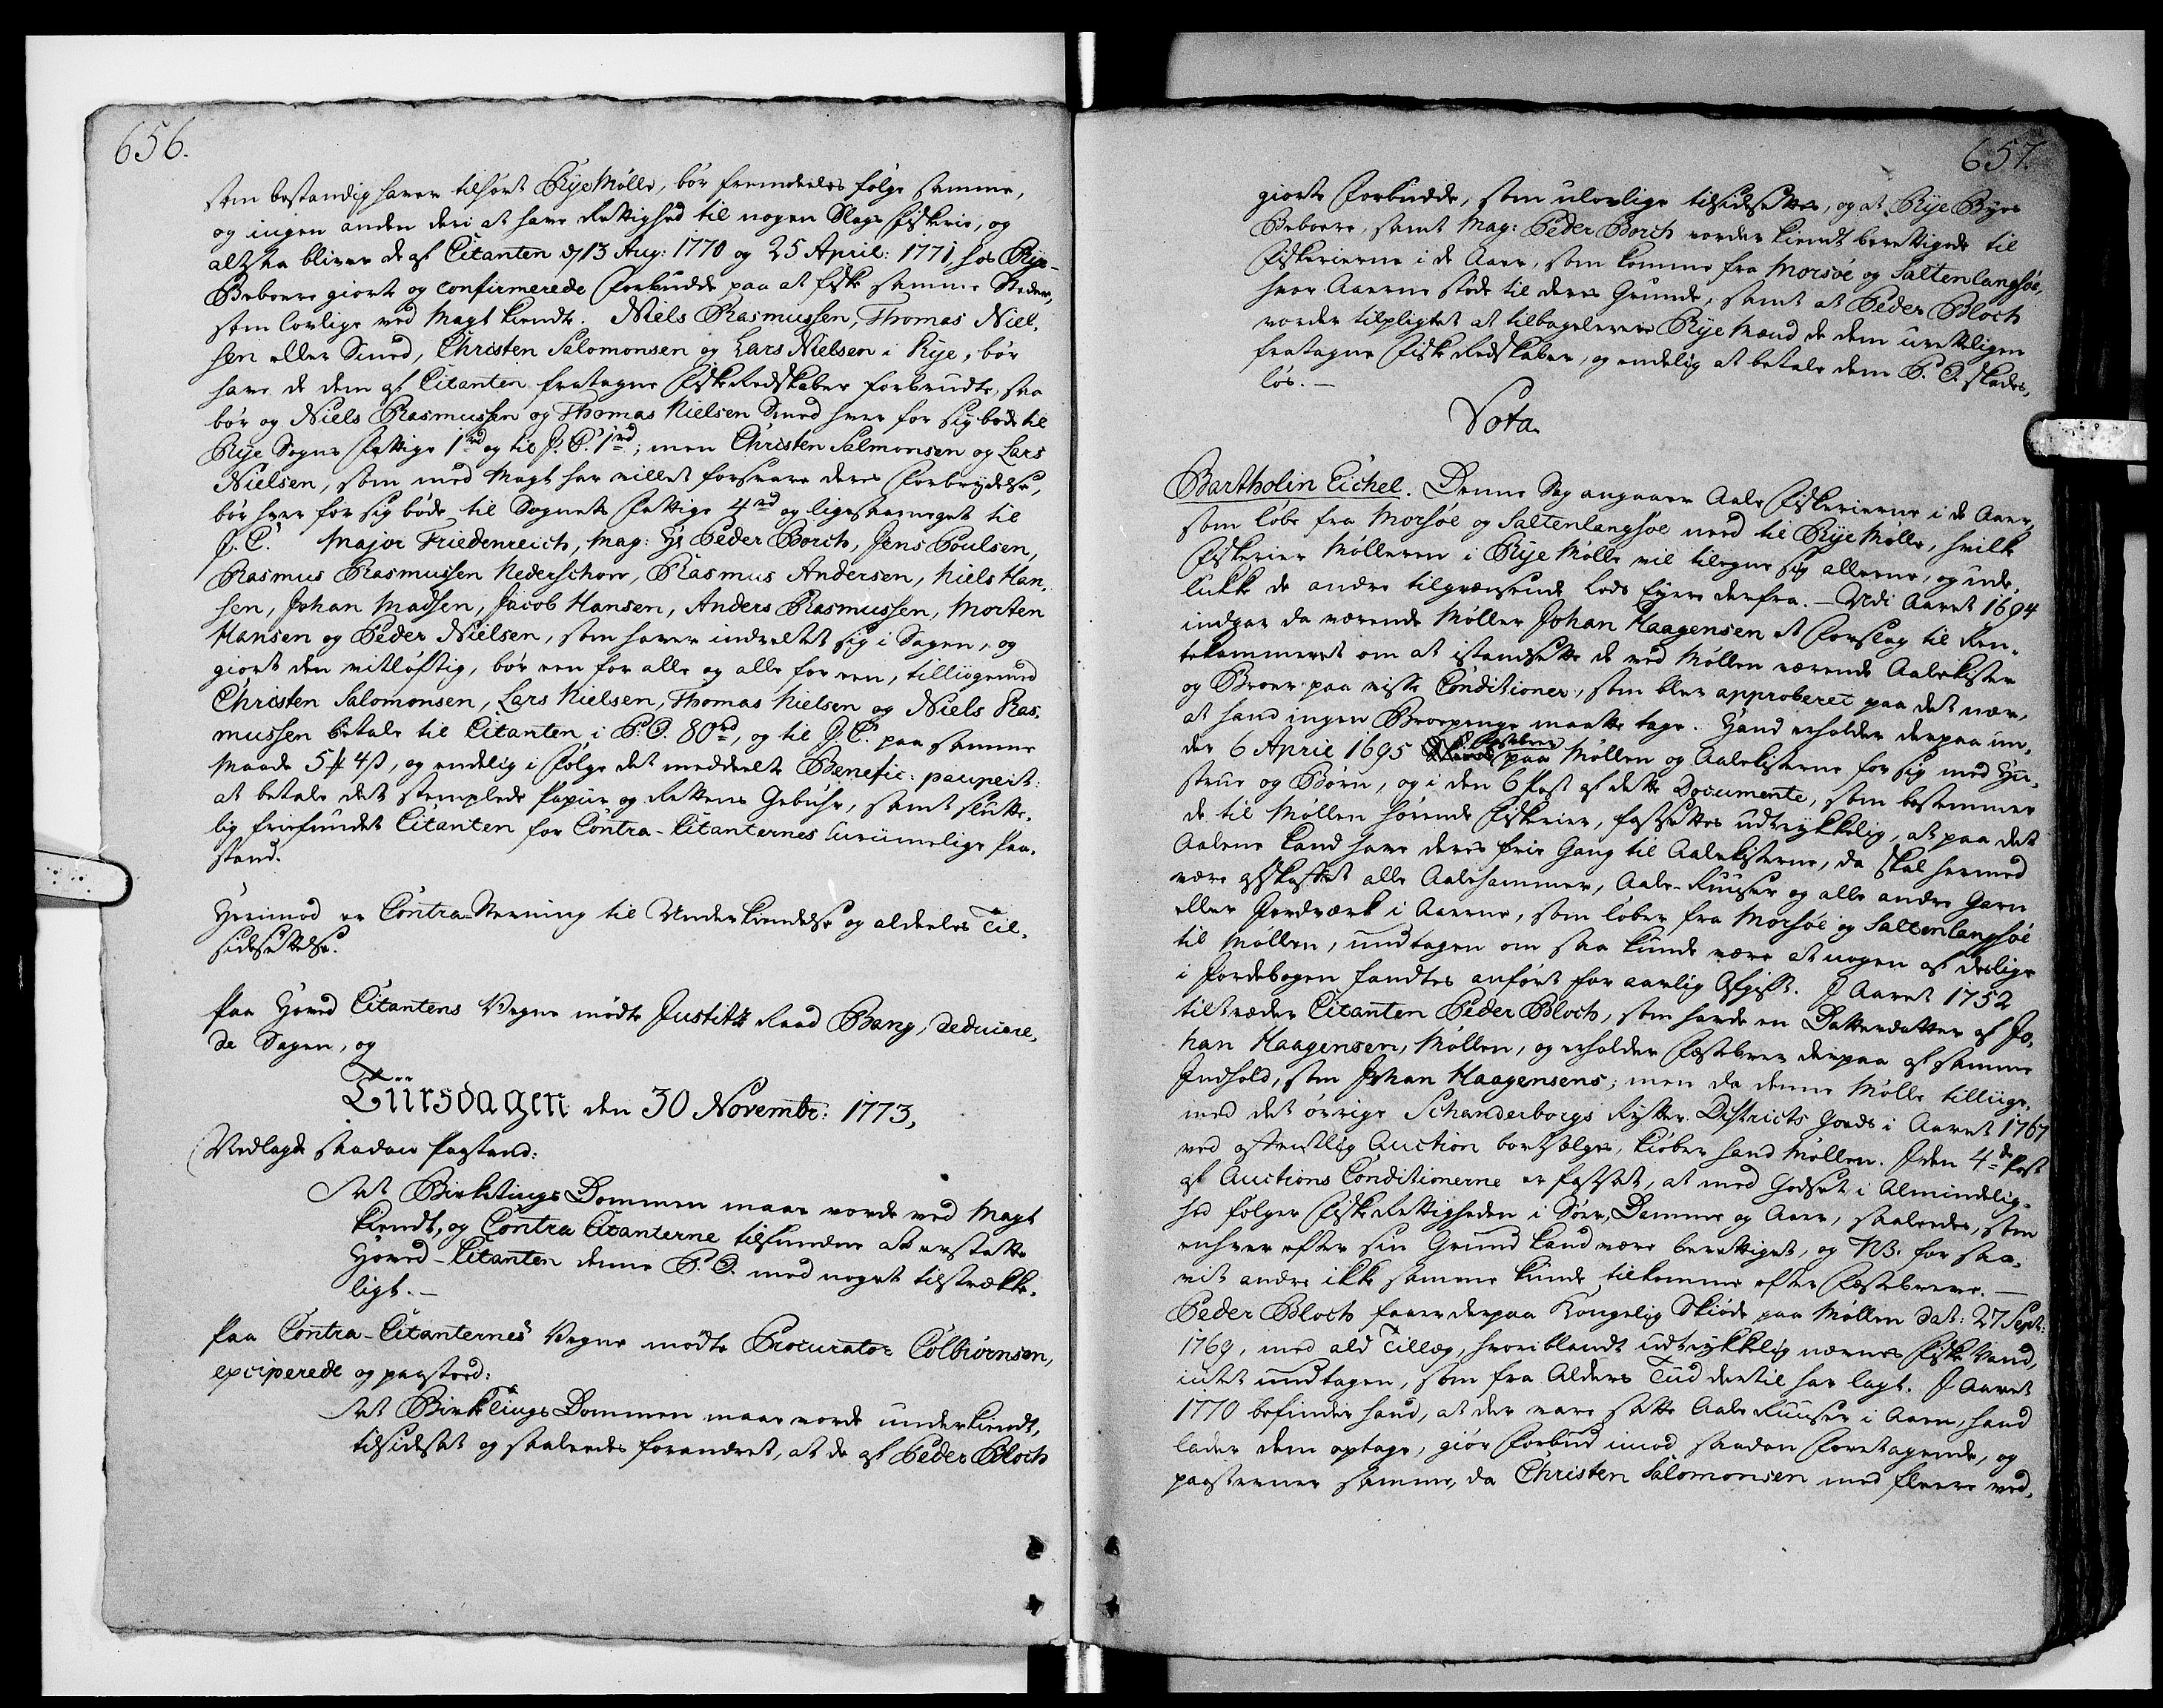 656.
som bestandig haver tilhørt Rye Mølle, bør fremdeeles følge samme,
og ingen anden deri at have Rettighed til nogen Slags Fiskerie, og
altsaa bliver de af Citanten d. 13 Aug: 1770 og 25 April: 1771, hos Rye-
Beboere giorte og confirmerede Forbudde paa at fiske samme Steder,
som lovlige ved Magt kiendte. Niels Rasmussen, Thomas Niel-
sen eller Smed, Christen Salomonsen og Lars Nielsen i Rye, bør
have de dem af Citanten fratagne Fiske Redskaber forbrudte, saa
bør og Niels Rasmussen og Thomas Nielsen Smed hver for sig bøde til
Rye Sogns Fattige 1 rd og til J. C. 1 rd; men Christen Salmonsen og Lars
Nielsen, som med Magt har villet forsvare deres Forbrydelse,
bør hver for sig bøde til Sognets Fattige 4 rd og ligesaameget til
J. C. Major Friedenreich, Mag: Hr Peder Borch, Jens Poulsen,
Rasmus Rasmussen Nederschow, Rasmus Andersen, Niels Han-
sen, Johan Madsen, Jacob Hansen, Anders Rasmussen, Morten
Hansen og Peder Nielsen, som haver indviklet sig i Sagen, og
giort den vitløftig, bør een for alle og alle for een, tilligemed
Christen Salomonsen, Lars Nielsen, Thomas Nielsen og Niels Ras-
mussen betale til Citanten i P. O. 80 rd, og til J. C. paa samme
Maade 5 4 ß, og endelig i følge det meddeelte Benefic: paupert:
at betale det stemplede Papiir og Rettens Gebühr, samt slutte-
lig frifundet Citanten for Contra-Citanternes urimelige Paa-
stand.
Herimod er Contra-Stevning til Underkiendelse og aldeeles Til-
sidesættelse.
Paa Hoved Citantens Vegne mødte Justitz Raad Bang, deducere-
de Sagen, og
Tiirsdagen den 30 Novembr: 1773,
Nedlagde saadan Paastand:
At Birketings Dommen maae vorde ved Magt
kiendt, og Contra Citanterne tilfunden at erstatte
Hoved-Citanten denne P. O. med noget tilstrække-
ligt.—
Paa Contra-Citanternes Vegne mødte Procurator Colbiørnsen,
exciperede og paastod:
At Birketings Dommen maae vorde underkiendt,
tilsidesat og saaledes forandret, at de af Peder Bloch
657.
giorte Forbudde, som ulovlige tilsidesættes, og at Rye Byes
Beboere, samt Mag: Peder Borch vorder kiendt berettigede til
Fiskerierne i de Aaer, som komme fra Morsøe og Saltenlangsøe,
hvor Aaerne støde til deres Grunde, samt at Peder Bloch
vorder tilpligtet at tilbagelevere Rye Mænd de dem uretteligen
fratagne Fiske Redskaber, og endelig at betale dem P. O. skades-
løs.—
Vota
Bartholin Eichel. Denne Sag angaaer Aale Fiskerierne i de Aaer,
som løbe fra Morsøe og Saltenlangsøe need til Rye Mølle, hvilke
Fiskerier Mølleren i Rye Mølle vil tilegne sig alleene, og ude-
lukke de andre tilgrændsende Lods Eyere derfra.— Udi Aaret 1694
indgav da værende Møller Johan Haagensen et Forslag til Ren-
tekammeret om at istandsætte de ved Møllen værende Aalekister
og Broer paa visse Conditioner, som blev approberet paa det nær,
at hand ingen Broepenge maatte tage. Hand erholder derpaa un-
der 6 April 1695 Fæstebrev paa Møllen og Aalekisterne for sig med Hu-
strue og Børn, og i den 6 Post af dette Documente, som bestemmer
de til Møllen hørende Fiskerier, fastsættes udtrykkelig, at paa det
Aalene kand have deres frie Gang til Aalekisterne, da skal hermed
være afskaffet alle Aalehammer, Aale-Ruuser og alle andre Garn
eller Jordværk i Aaerne, som løber fra Morsøe og Saltenlangsøe
til Møllen, undtagen om saa kunde være at nogen af deslige
i Jordebogen fandtes anført for aarlig Afgift. I Aaret 1752
tiltræder Citanten Peder Bloch, som havde en Datterdatter af Jo-
han Haagensen, Møllen, og erholder Fæstebrev derpaa af samme
Indhold, som Johan Haagensens; men da denne Mølle tillige-
med det øvrige Schanderborgs Rytter Districts Gods i Aaret 1767
ved offentlig Auction bortsælges, kiøber hand Møllen. I den 4de Post
af Auctions Conditionerne er fastsat, at med Godset i Almindelig-
hed følger Fiske Rettigheden i Søer, Damme og Aaer, saaledes, som
enhver efter sin Grund kand være berettiget, og NB. for saa-
vit andre ikke samme kunde tilkomme efter Fæstebreve.—
Peder Bloch faaer derpaa Kongelig Skiøde paa Møllen dat: 27 Sept:
1769, med ald Tillæg, hvoriblandt udtrykkelig nævnes Fiske Vand,
intet undtagen, som fra Alders Tiid dertil har lagt. I Aaret
1770 befinder hand, at der vare satte Aale Ruuser i Aaen, hand
lader dem optage, giør Forbud imod saadan Foretagende, og
paastevner samme, da Christen Salomonsen med fleere ved-